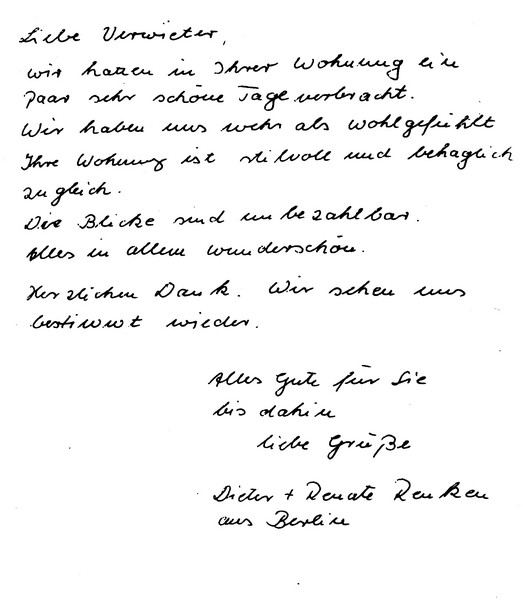 Liebe Vermieter,
wir hatten in Ihrer Wohnung ein
paar sehr schöne Tage verbracht.
Wir haben uns mehr als wohlgefühlt
Ihre Wohnung ist stilvoll und behaglich
zugleich.
Die Blicke sind unbezahlbar.
Alles in allem wunderschön.
Herzlichen Dank. Wir sehen uns
bestimmt wieder.
Alles Gute für Sie
bis dahin
liebe Grüße
Dieter + Renate Renken
aus Berlin